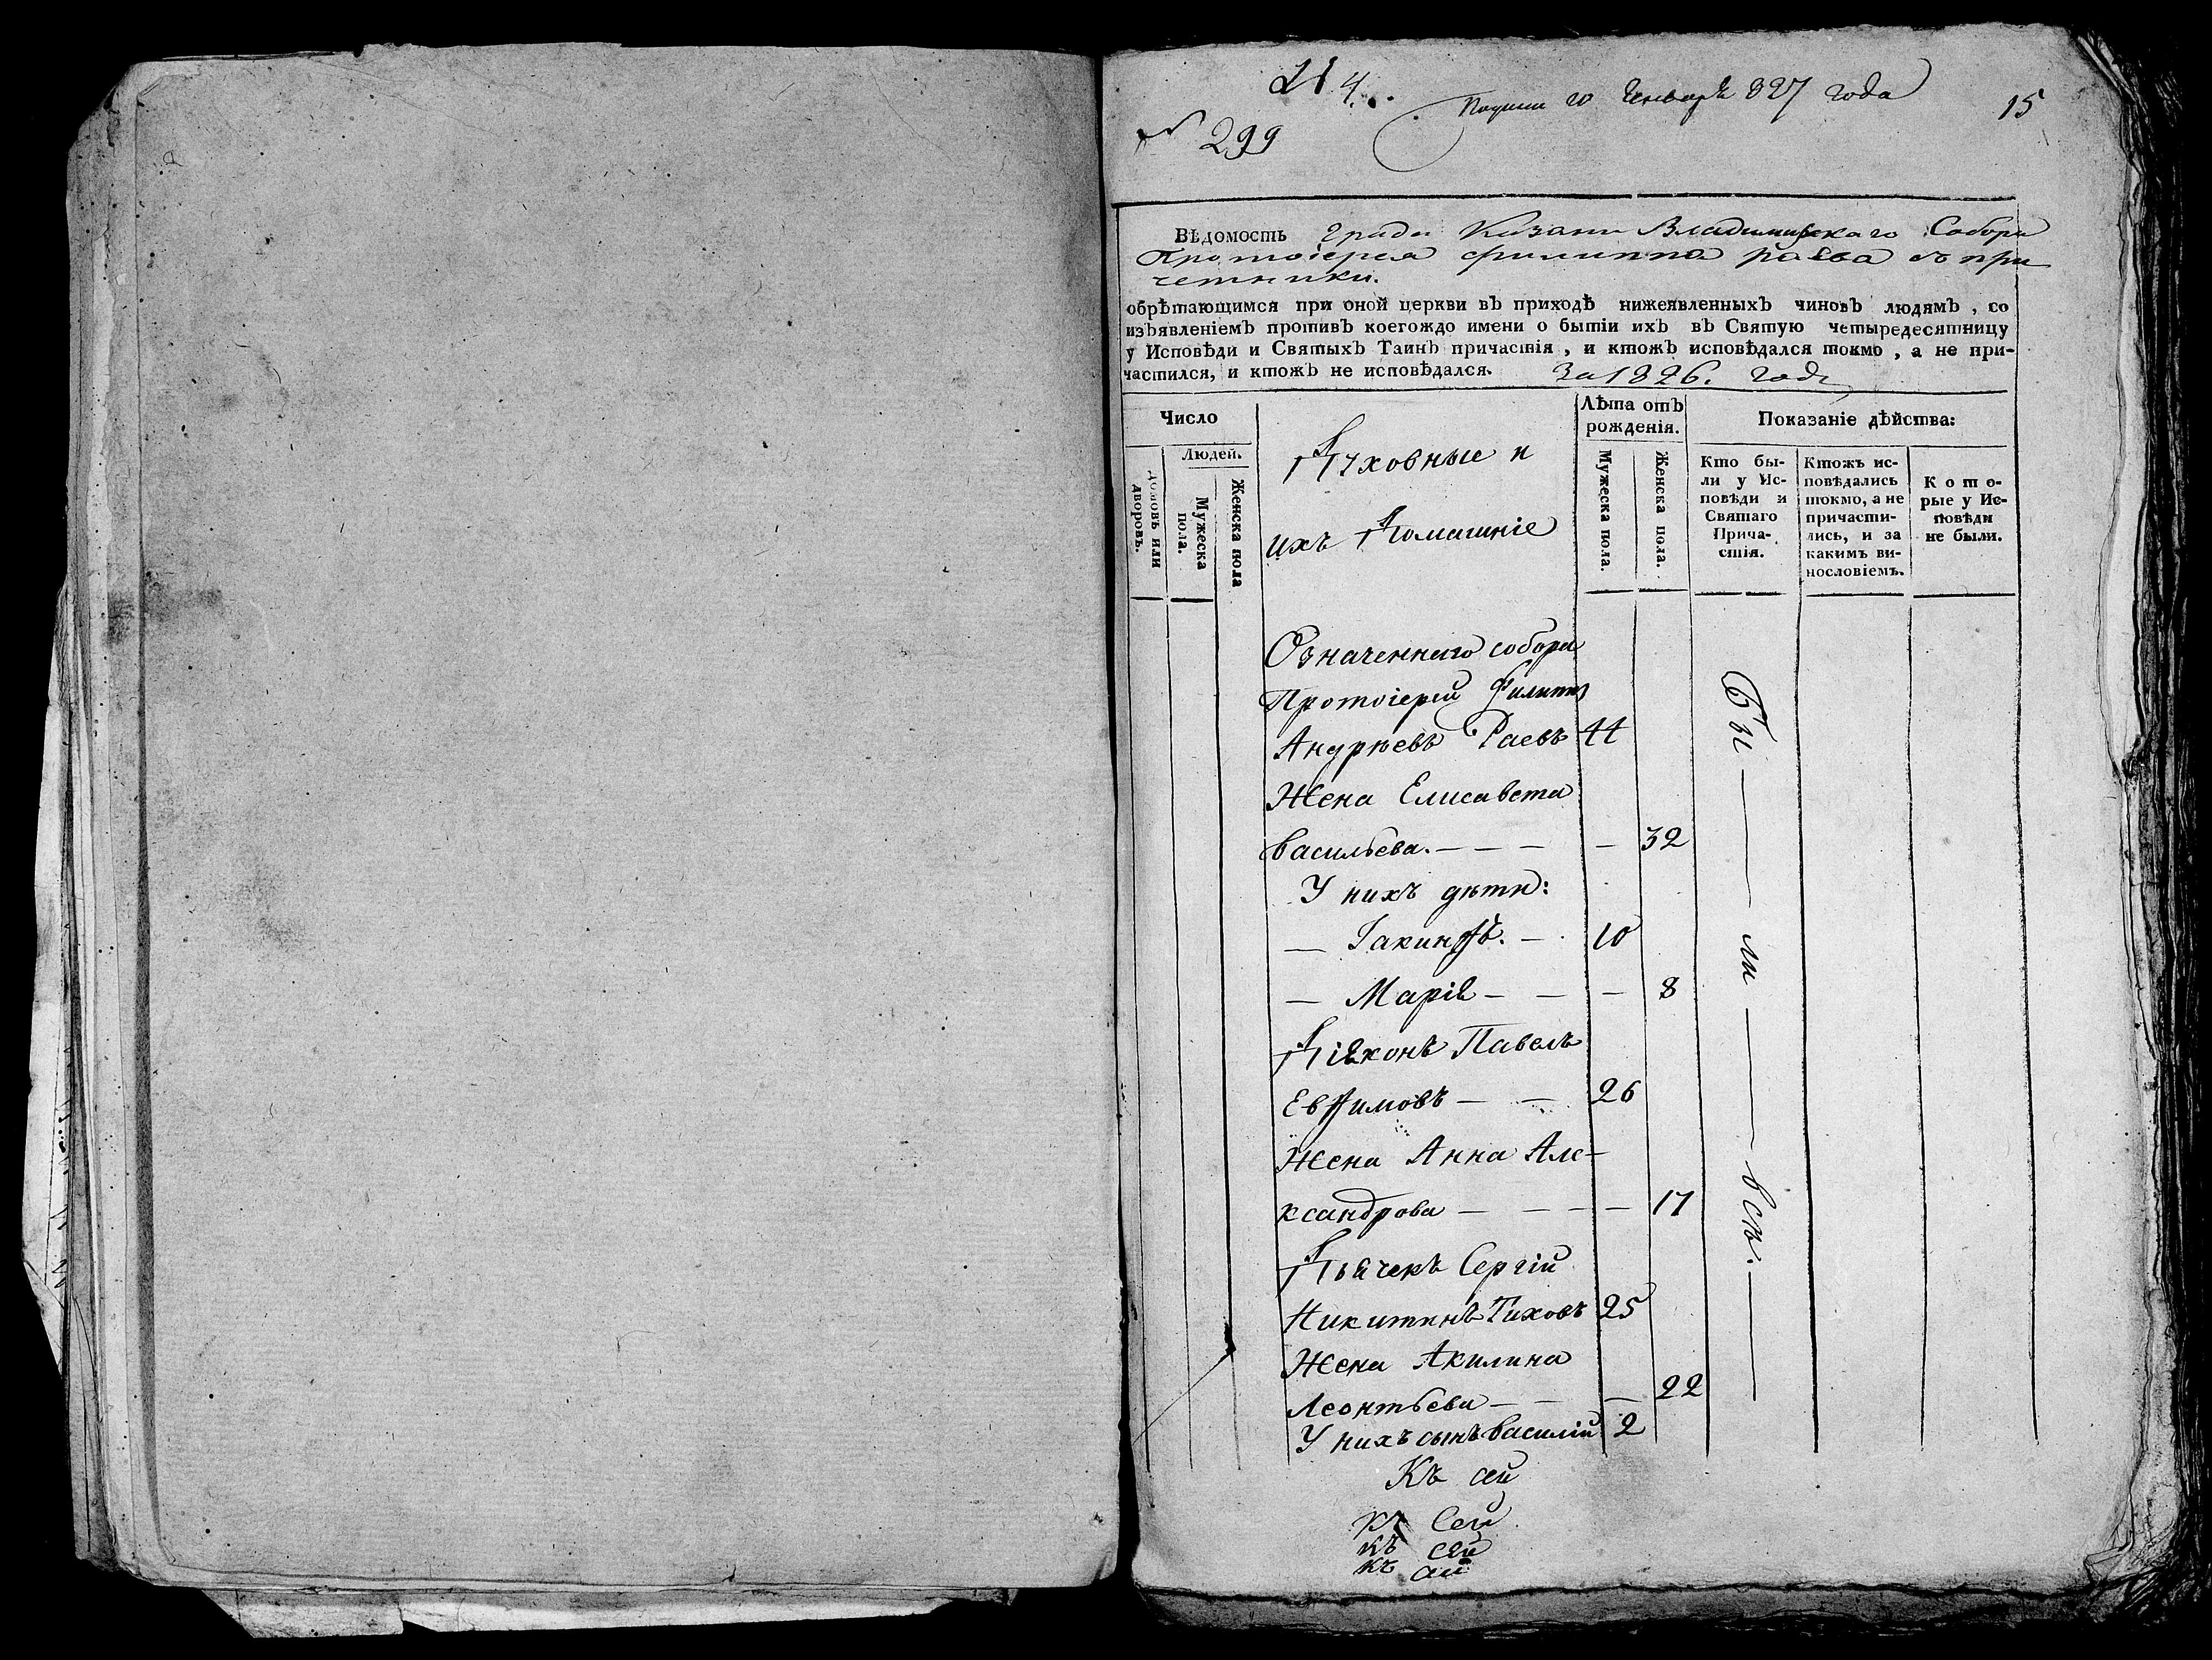 4.
10 Генваря 827 года
15
№ 299
Вѣдомость града Казани Владимирскаго Собора
Протоіерея Филиппа Раева съ при
четники.
обрѣтающимся при оной церкви въ приходѣ нижеявленныхъ чиновъ людямъ, со
изъявленіемъ противъ коегождо имени о бытіи ихъ въ Святую четыредесятницу
у Исповѣди и Святыхъ Таинъ причастія, и ктожъ исповѣдался токмо, а не при-
частился, и ктожъ не исповѣдался. За 1826. годъ
Число
Домовъ или дворовъ.
Людей.
Мужеска пола.
Женска пола
Духовные и
ихъ Домашніе
Лѣта отъ
рожденія.
Мужеска пола.
Женска пола.
Показаніе дѣйства:
Кто бы-
ли у Ис-
повѣди и
Святаго
Прича-
стія.
Ктожъ ис-
повѣдались
токмо, а не
причасти-
лись, и за
какимъ ви-
нословіемъ.
Кото-
рые у Ис-
повѣди
не были.
Означеннаго собора
Протоіерей Филиппъ
Андрѣевъ Раевъ 44
Жена Елисавета
Васильева. — — — — 32
У нихъ дѣти:
— Іакинѳъ. — 10
— Марія — — — 8
Діяконъ Павелъ
Евѳимовъ — — 26
Жена Анна Але-
ксандрова — — — — 17
Дьячекъ Сергій
Никитинъ Тиховъ 25
Жена Акилина
Леонтьева — — — 22
У нихъ сынъ Василій 2
Бы — ли — всѣ. —
Къ сей
къ Сей
къ сей
къ сей